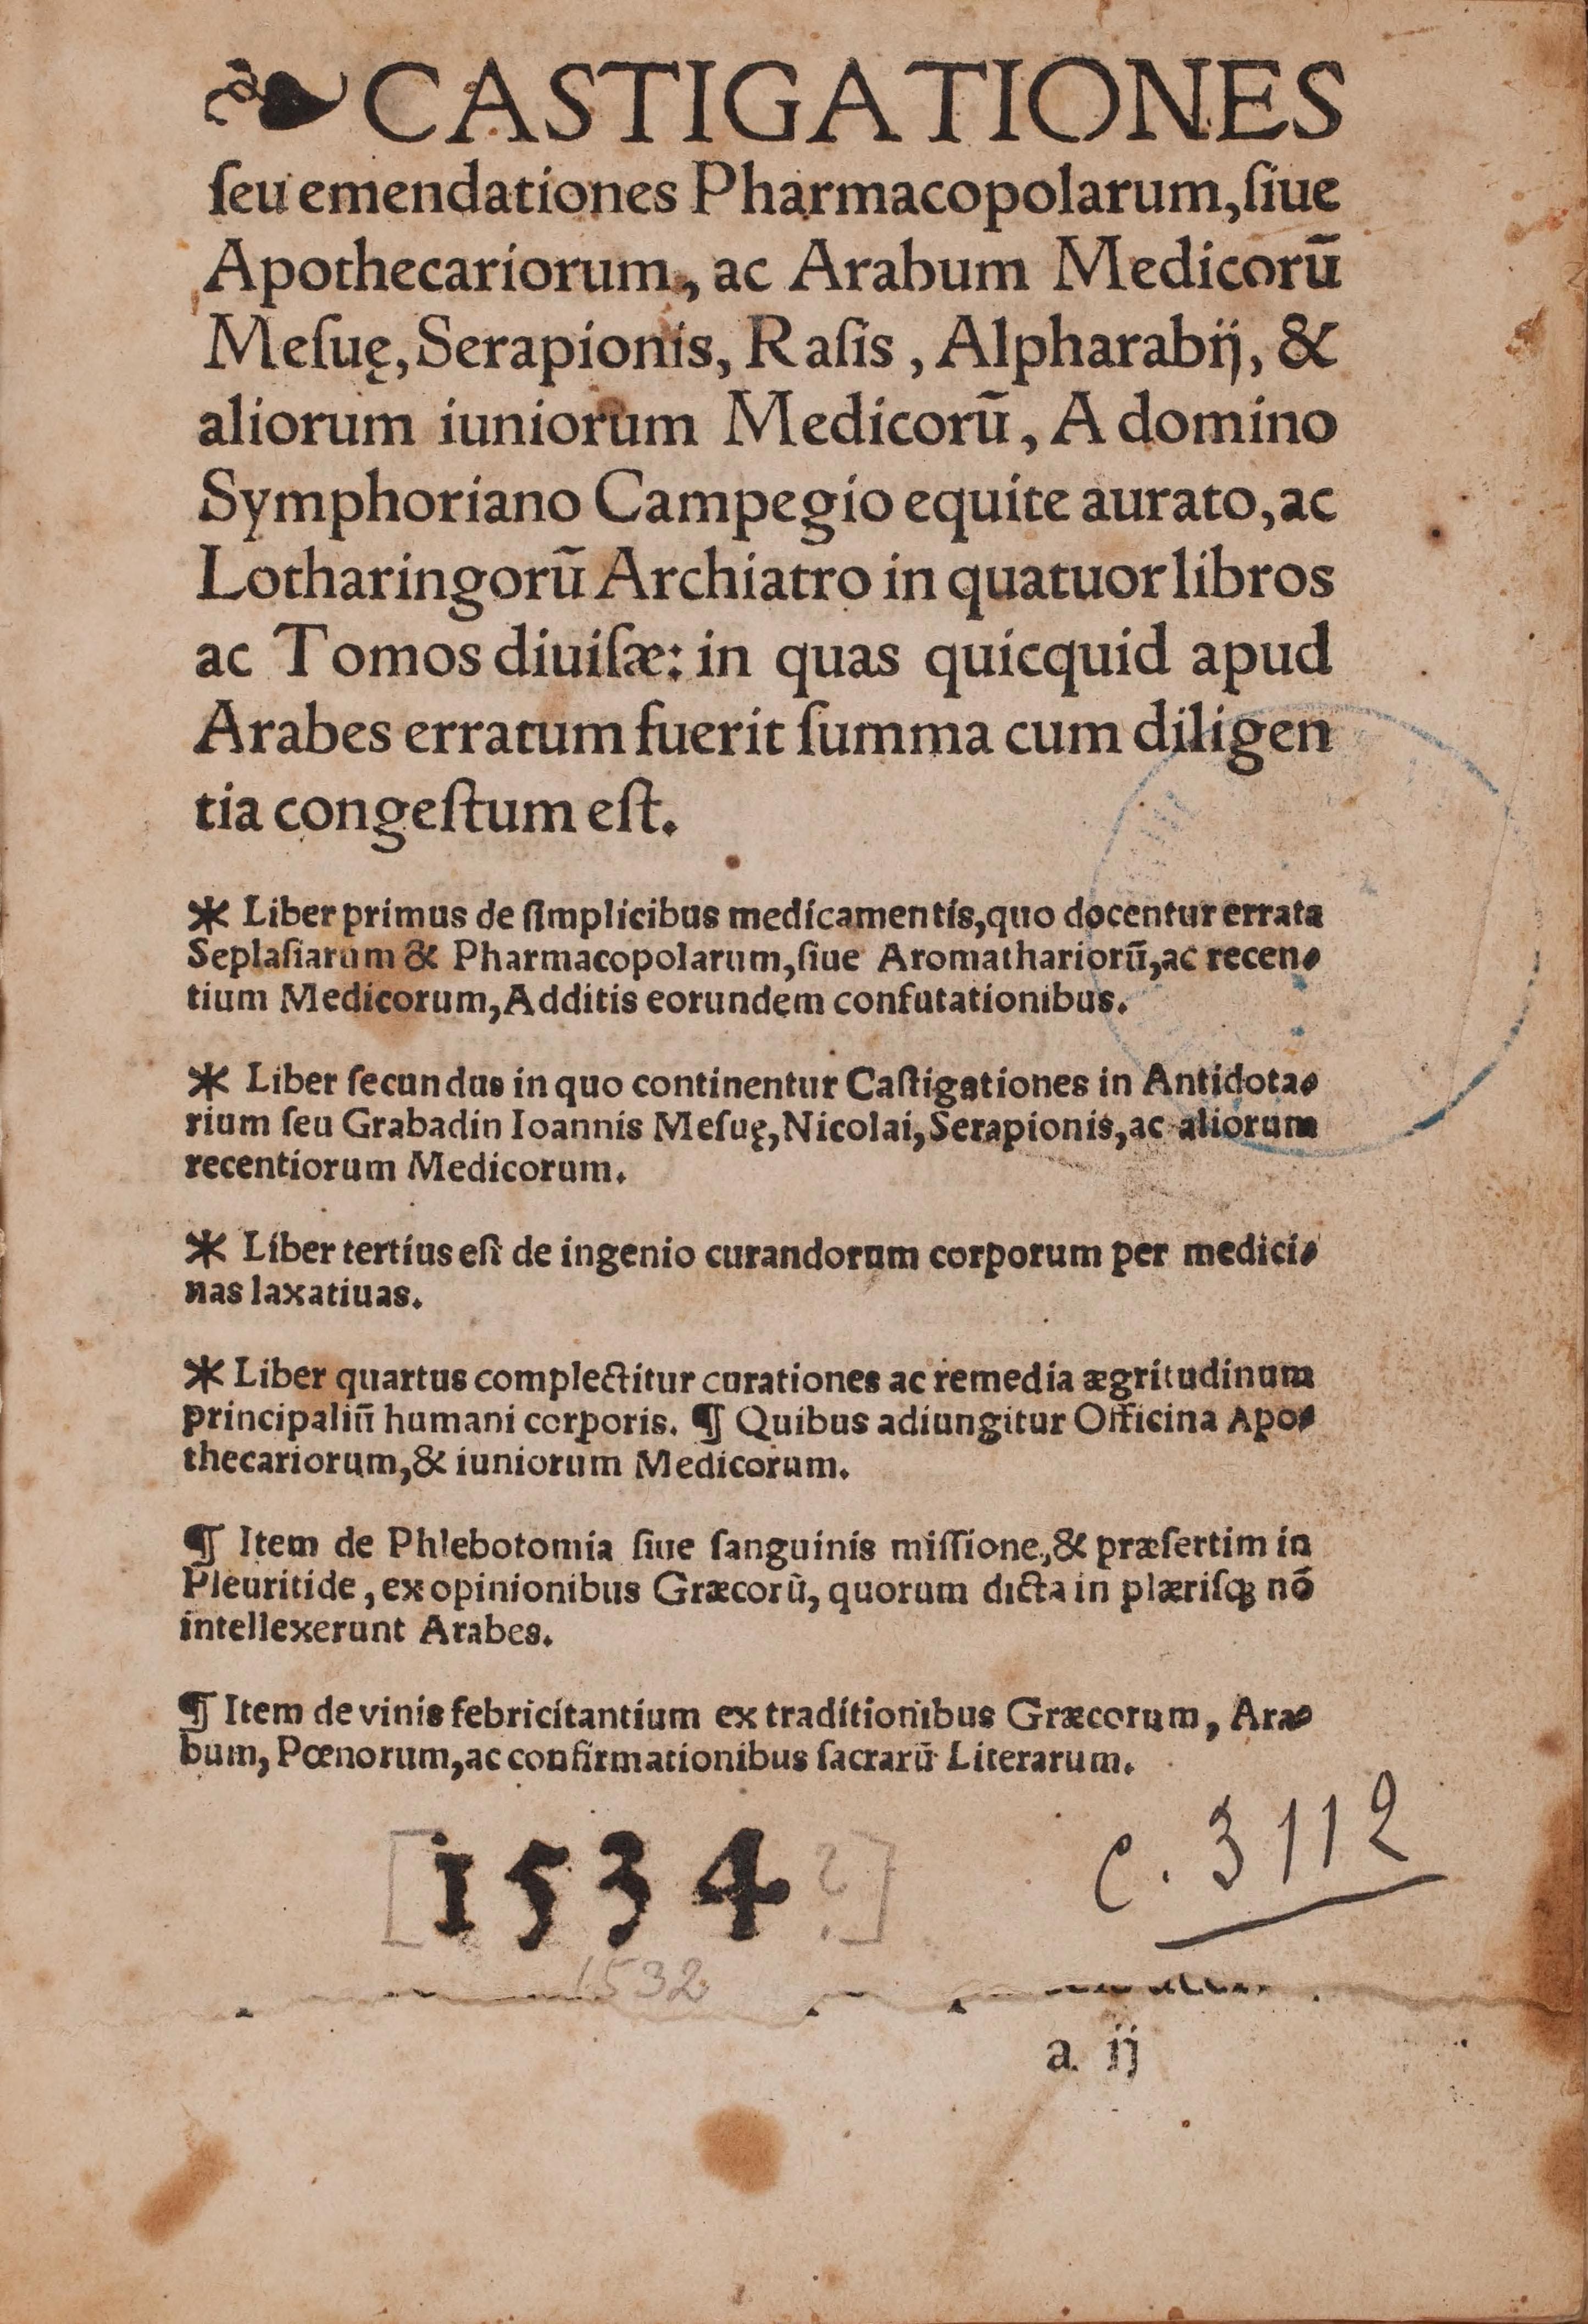 ❧ CASTIGATIONES
ſeu emendationes Pharmacopolarum, ſiue
Apothecariorum, ac Arabum Medicorū
Meſuę, Serapionis, Raſis, Alpharabij, &
aliorum iuniorum Medicorū, A domino
Symphoriano Campegio equite aurato, ac
Lotharingorū Archiatro in quatuor libros
ac Tomos diuiſæ: in quas quicquid apud
Arabes erratum fuerit ſumma cum diligen
tia congeſtum eſt.
* Liber primus de ſimplicibus medicamentis, quo docentur errata
Seplaſiarum & Pharmacopolarum, ſiue Aromathariorū, ac recen-
tium Medicorum, Additis eorundem confutationibus.
* Liber ſecundus in quo continentur Caſtigationes in Antidota-
rium ſeu Grabadin Ioannis Meſuę, Nicolai, Serapionis, ac aliorum
recentiorum Medicorum.
* Liber tertius eſt de ingenio curandorum corporum per medici-
nas laxatiuas.
* Liber quartus complectitur curationes ac remedia ægritudinum
principaliū humani corporis. ¶ Quibus adiungitur Officina Apo-
thecariorum, & iuniorum Medicorum.
¶ Item de Phlebotomia ſiue ſanguinis miſſione, & præſertim in
Pleuritide, ex opinionibus Græcorū, quorum dicta in plæriſq; nō
intellexerunt Arabes.
¶ Item de vinis febricitantium ex traditionibus Græcorum, Ara-
bum, Pœnorum, ac confirmationibus ſacrarū Literarum.
[1534?]
c. 3112
1532
a ij